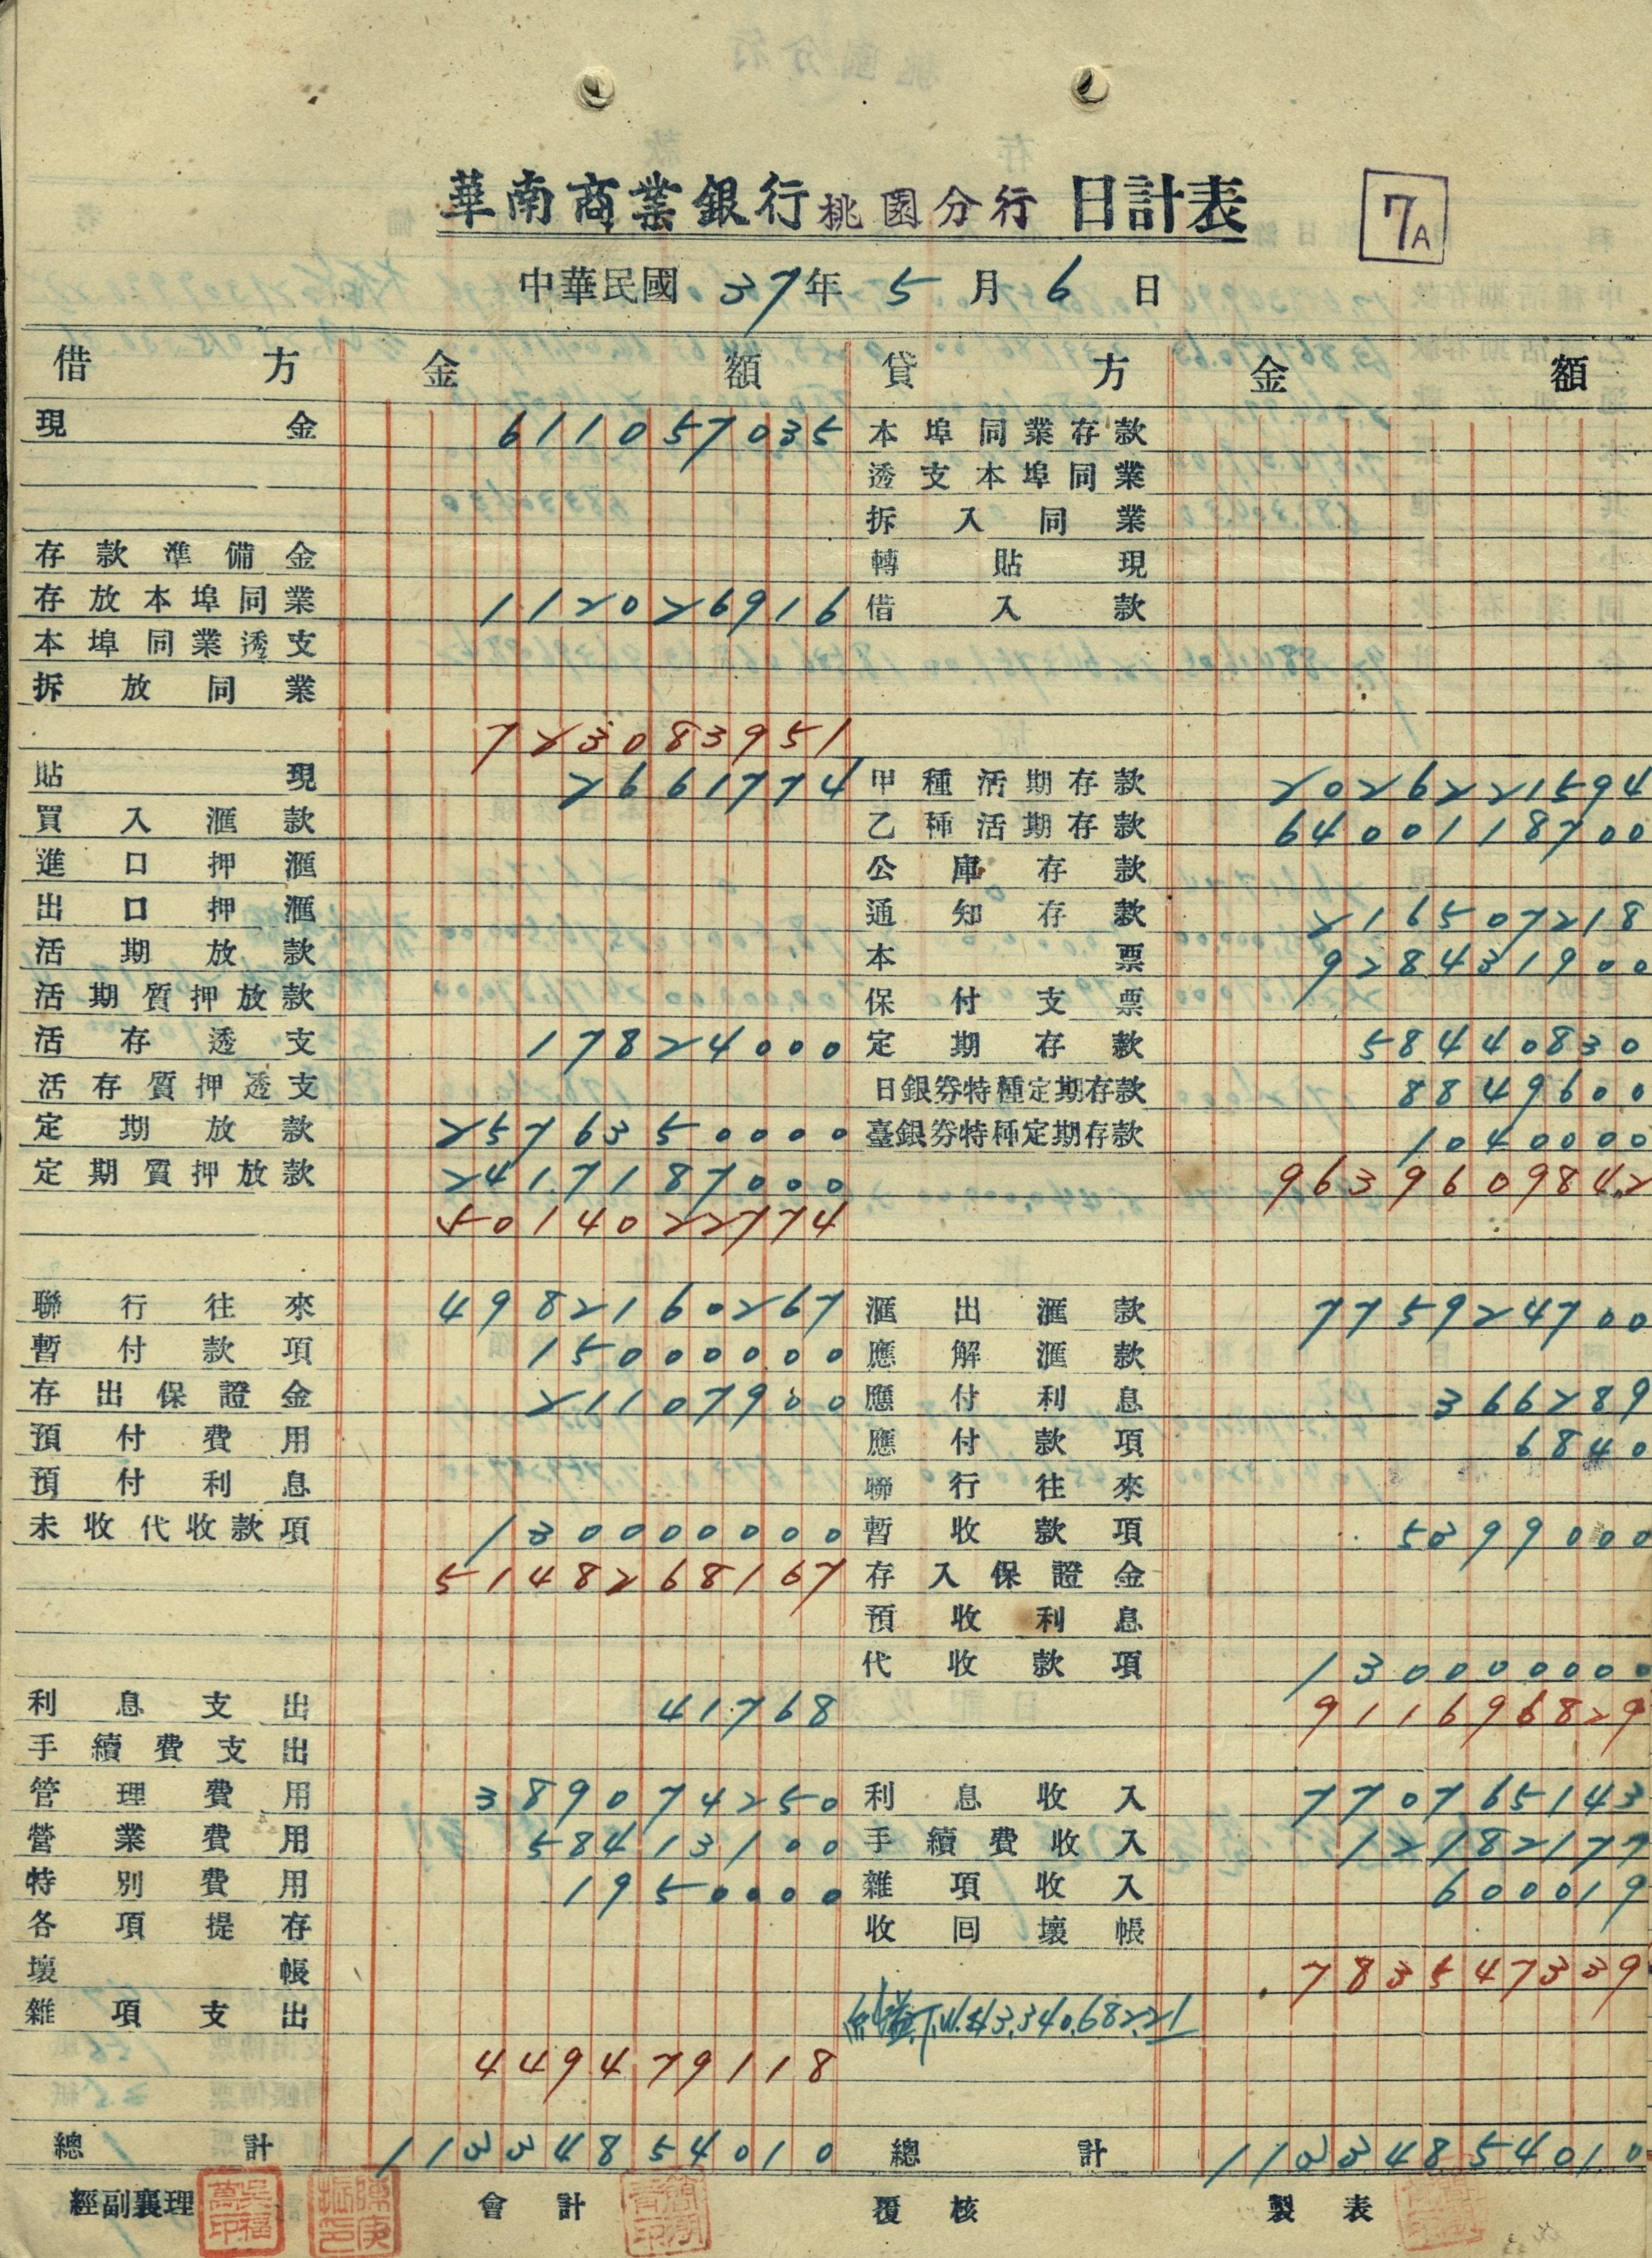 華南商業銀行桃園分行 日計表
7A
中華民國 37年 5月 6日
借方 金額 貸方 金額
現金 611057035 本埠同業存款
透支本埠同業
拆入同業
存款準備金 轉貼現
存放本埠同業 112026916 借入款
本埠同業透支
拆放同業
723083951
貼現 2661774 甲種活期存款 2026221594
買入滙款 乙種活期存款 6400118700
進口押滙 公庫存款
出口押滙 通知存款 216507218
活期放款 本票 928431900
活期質押放款 保付支票
活存透支 17824000 定期存款 58440830
活存質押透支 日銀券特種定期存款 8849600
定期放款 2576350000 臺銀券特種定期存款 1040000
定期質押放款 2417187000 9639609842
5014022774
聯行往來 4982160267 滙出滙款 775924700
暫付款項 15000000 應解滙款
存出保證金 21107900 應付利息 366289
預付費用 應付款項 6840
預付利息 聯行往來
未收代收款項 130000000 暫收款項 5399000
5148268167 存入保證金
預收利息
代收款項 130000000
利息支出 41768 911696829
手續費支出
管理費用 389074250 利息收入 770765143
營業費用 58413100 手續費收入 12182177
特別費用 1950000 雜項收入 600019
各項提存 收囘壞帳
壞帳 783547339
雜項支出 純益T.W.$3,340,682.21
449479118
總計 11334854010 總計 11334854010
經副襄理 會計 覆核 製表